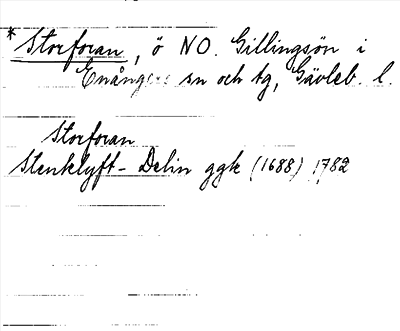 * Storforan, ö NO. Gillingsön i
Enångers sn och tg, Gävleb. l.
Storforan
Stenklyft - Delin ggk (1688) 1782